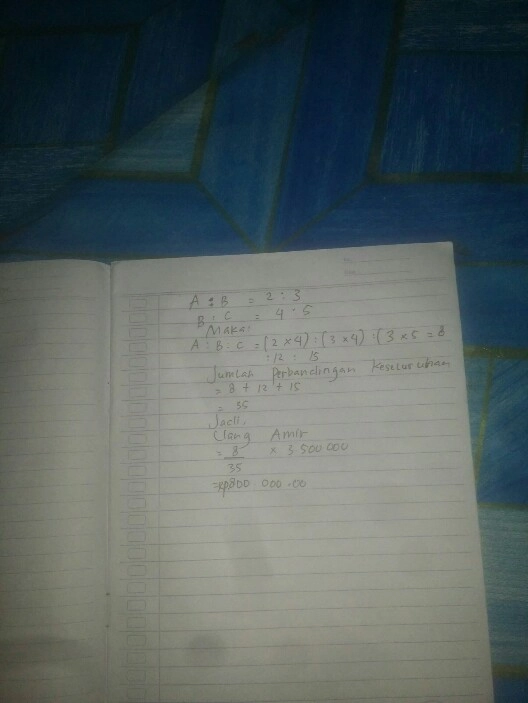 A : B = 2 : 3
B : C = 4 : 5
Maka:
A : B : C = (2 x 4) : (3 x 4) : (3 x 5 = 8
: 12 : 15
Jumlah Perbandingan Keseluruhan
= 8 + 12 + 15
= 35
Jadi,
Uang Amir
= 8/35 x 3.500 000
= Rp800 000.00